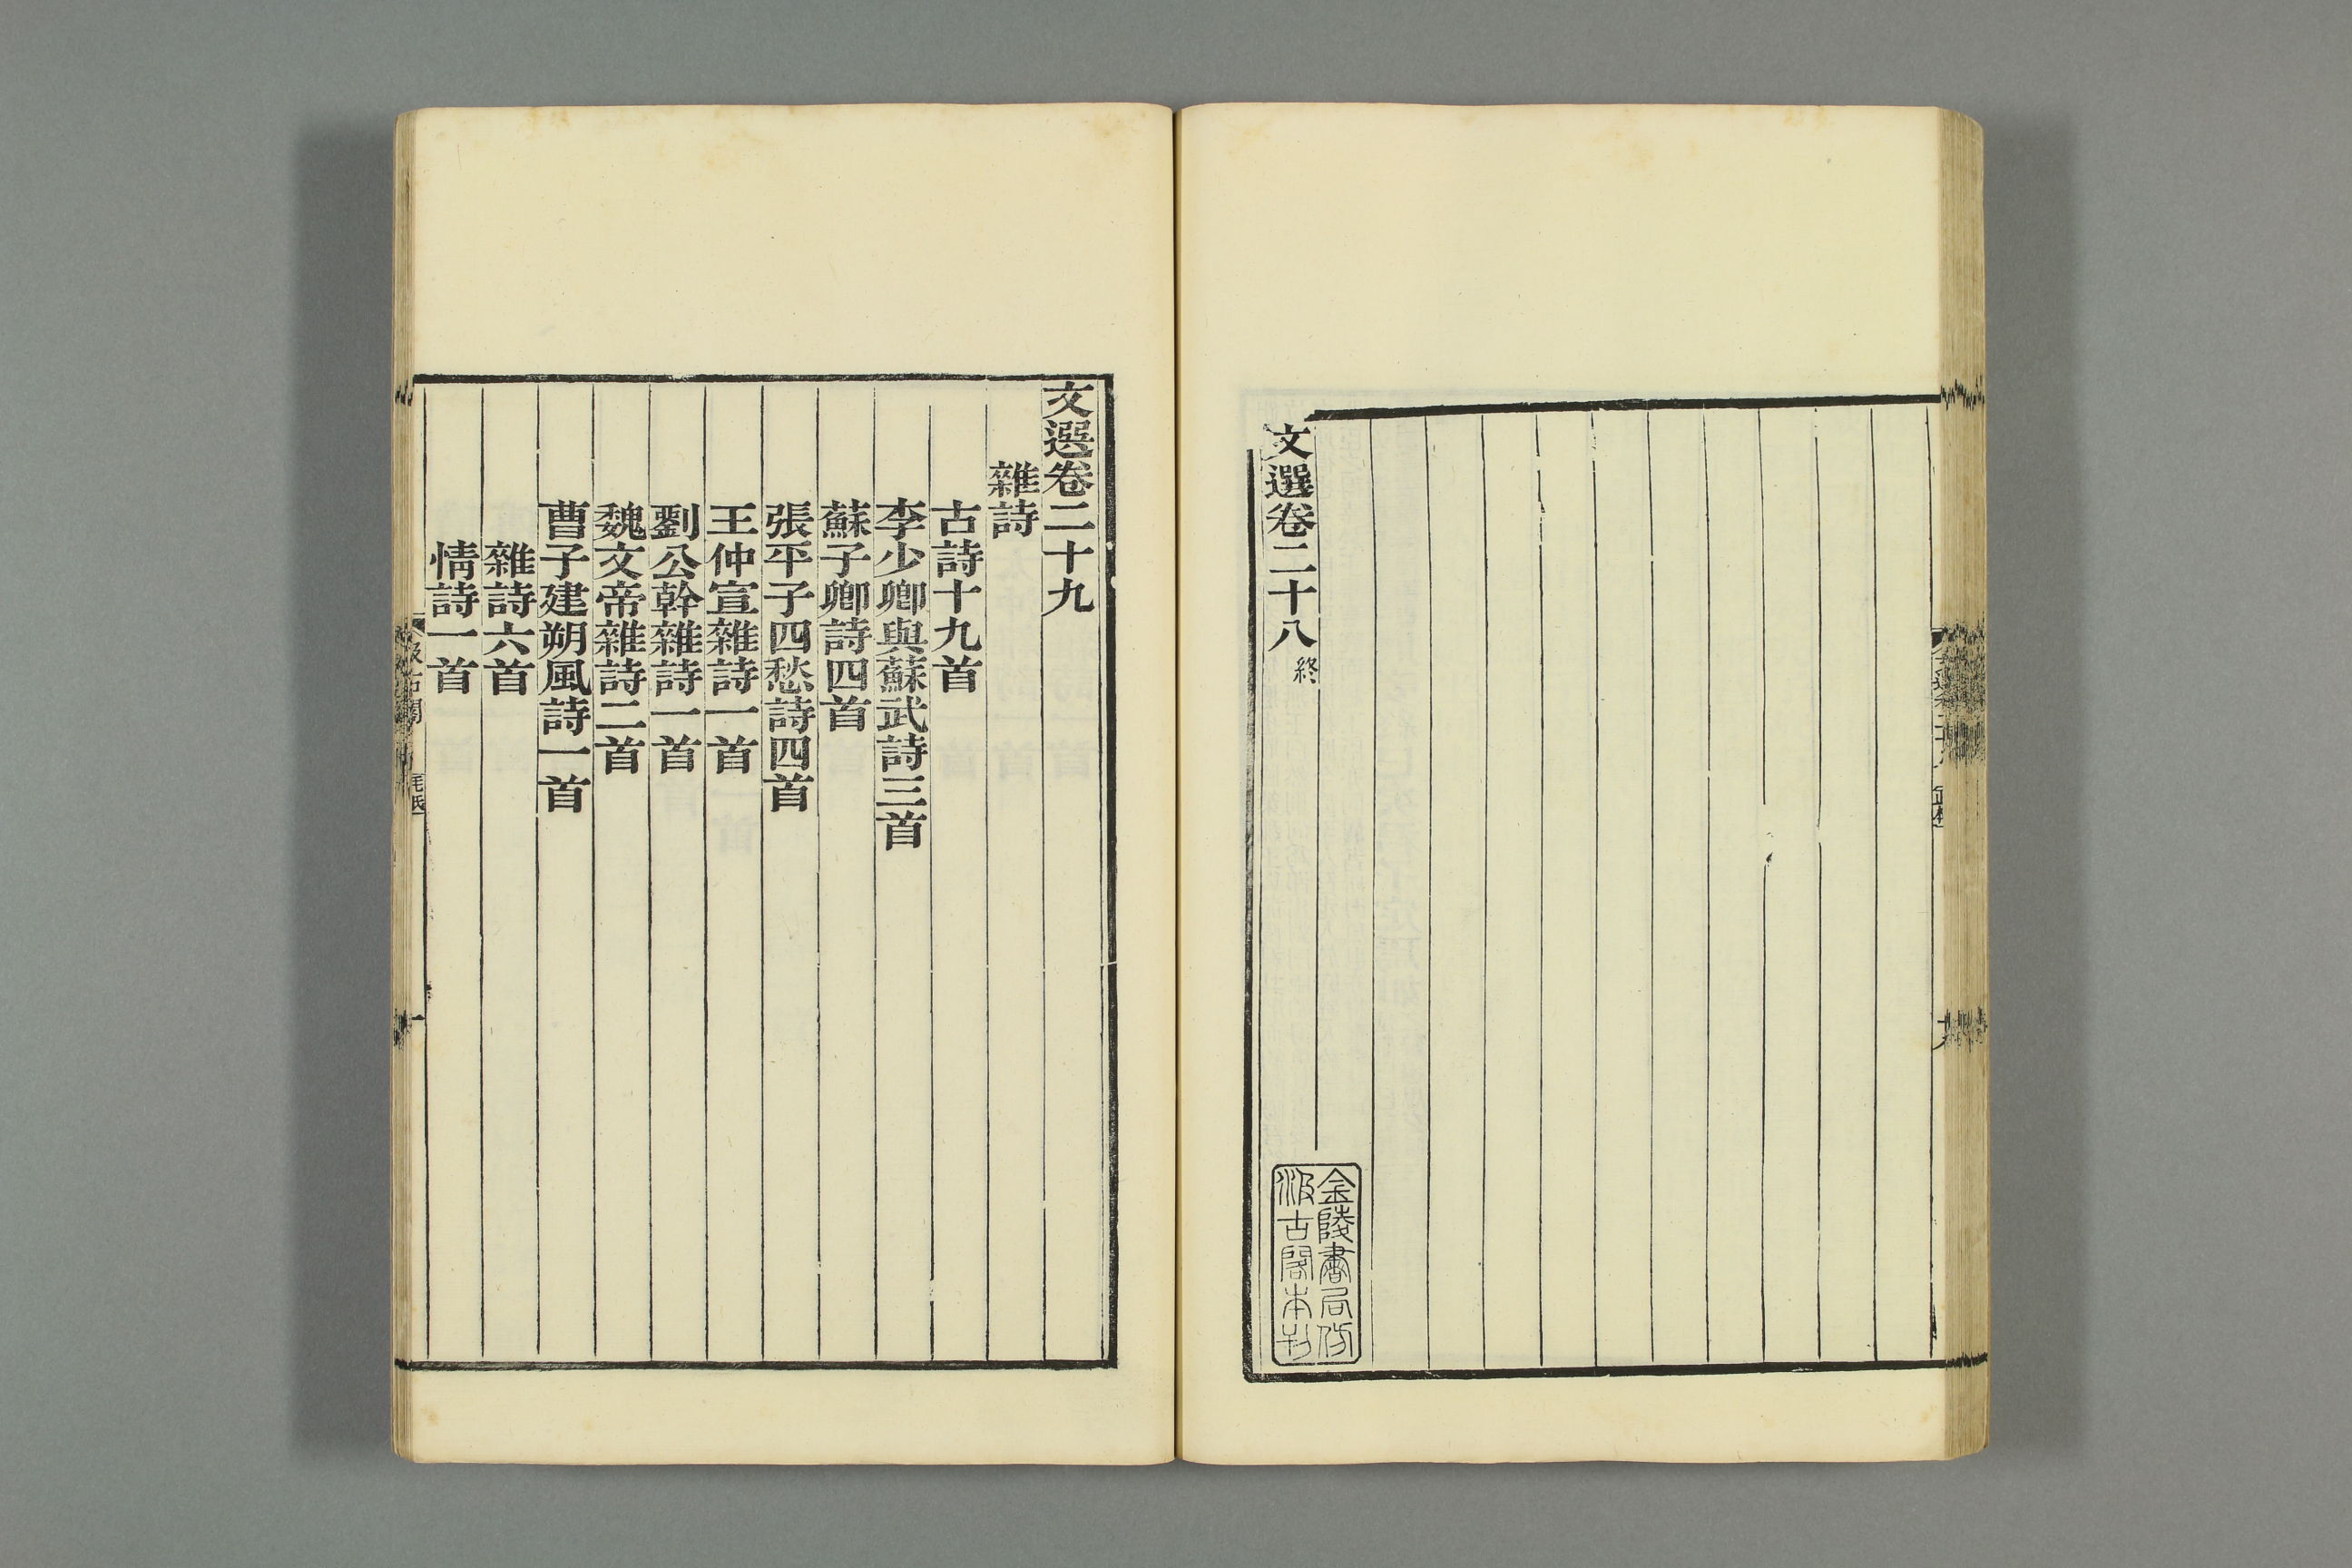 文選卷二十八終
金陵書局仿
汲古閣本刊
文選卷二十九
雜詩
古詩十九首
李少卿與蘇武詩三首
蘇子卿詩四首
張平子四愁詩四首
王仲宣雜詩一首
劉公幹雜詩一首
魏文帝雜詩二首
曹子建朔風詩一首
雜詩六首
情詩一首